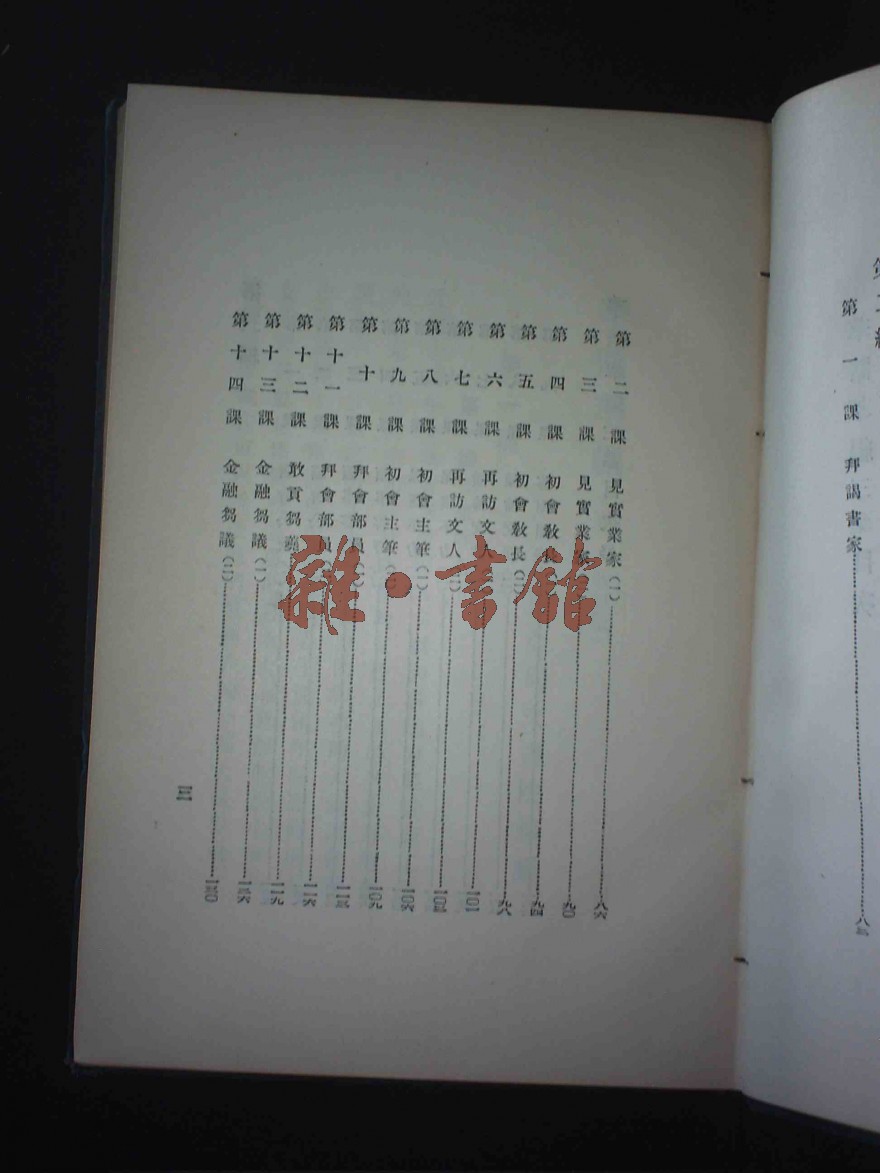 第一課 拜謁書家
第二課 見實業家(一)……八六
第三課 見實業家
第四課 初會教長……九四
第五課 初會教長(二)
第六課 再訪文人……一〇一
第七課 再訪文人(二)……一〇四
第八課 初會主筆(一)……一〇六
第九課 初會主筆……一〇九
第十課 拜會部員
第十一課 拜會部員……一一六
第十二課 敢貢芻蕘……一一九
第十三課 金融芻議(一)
第十四課 金融芻議(二)……一三〇
三
雜·書館